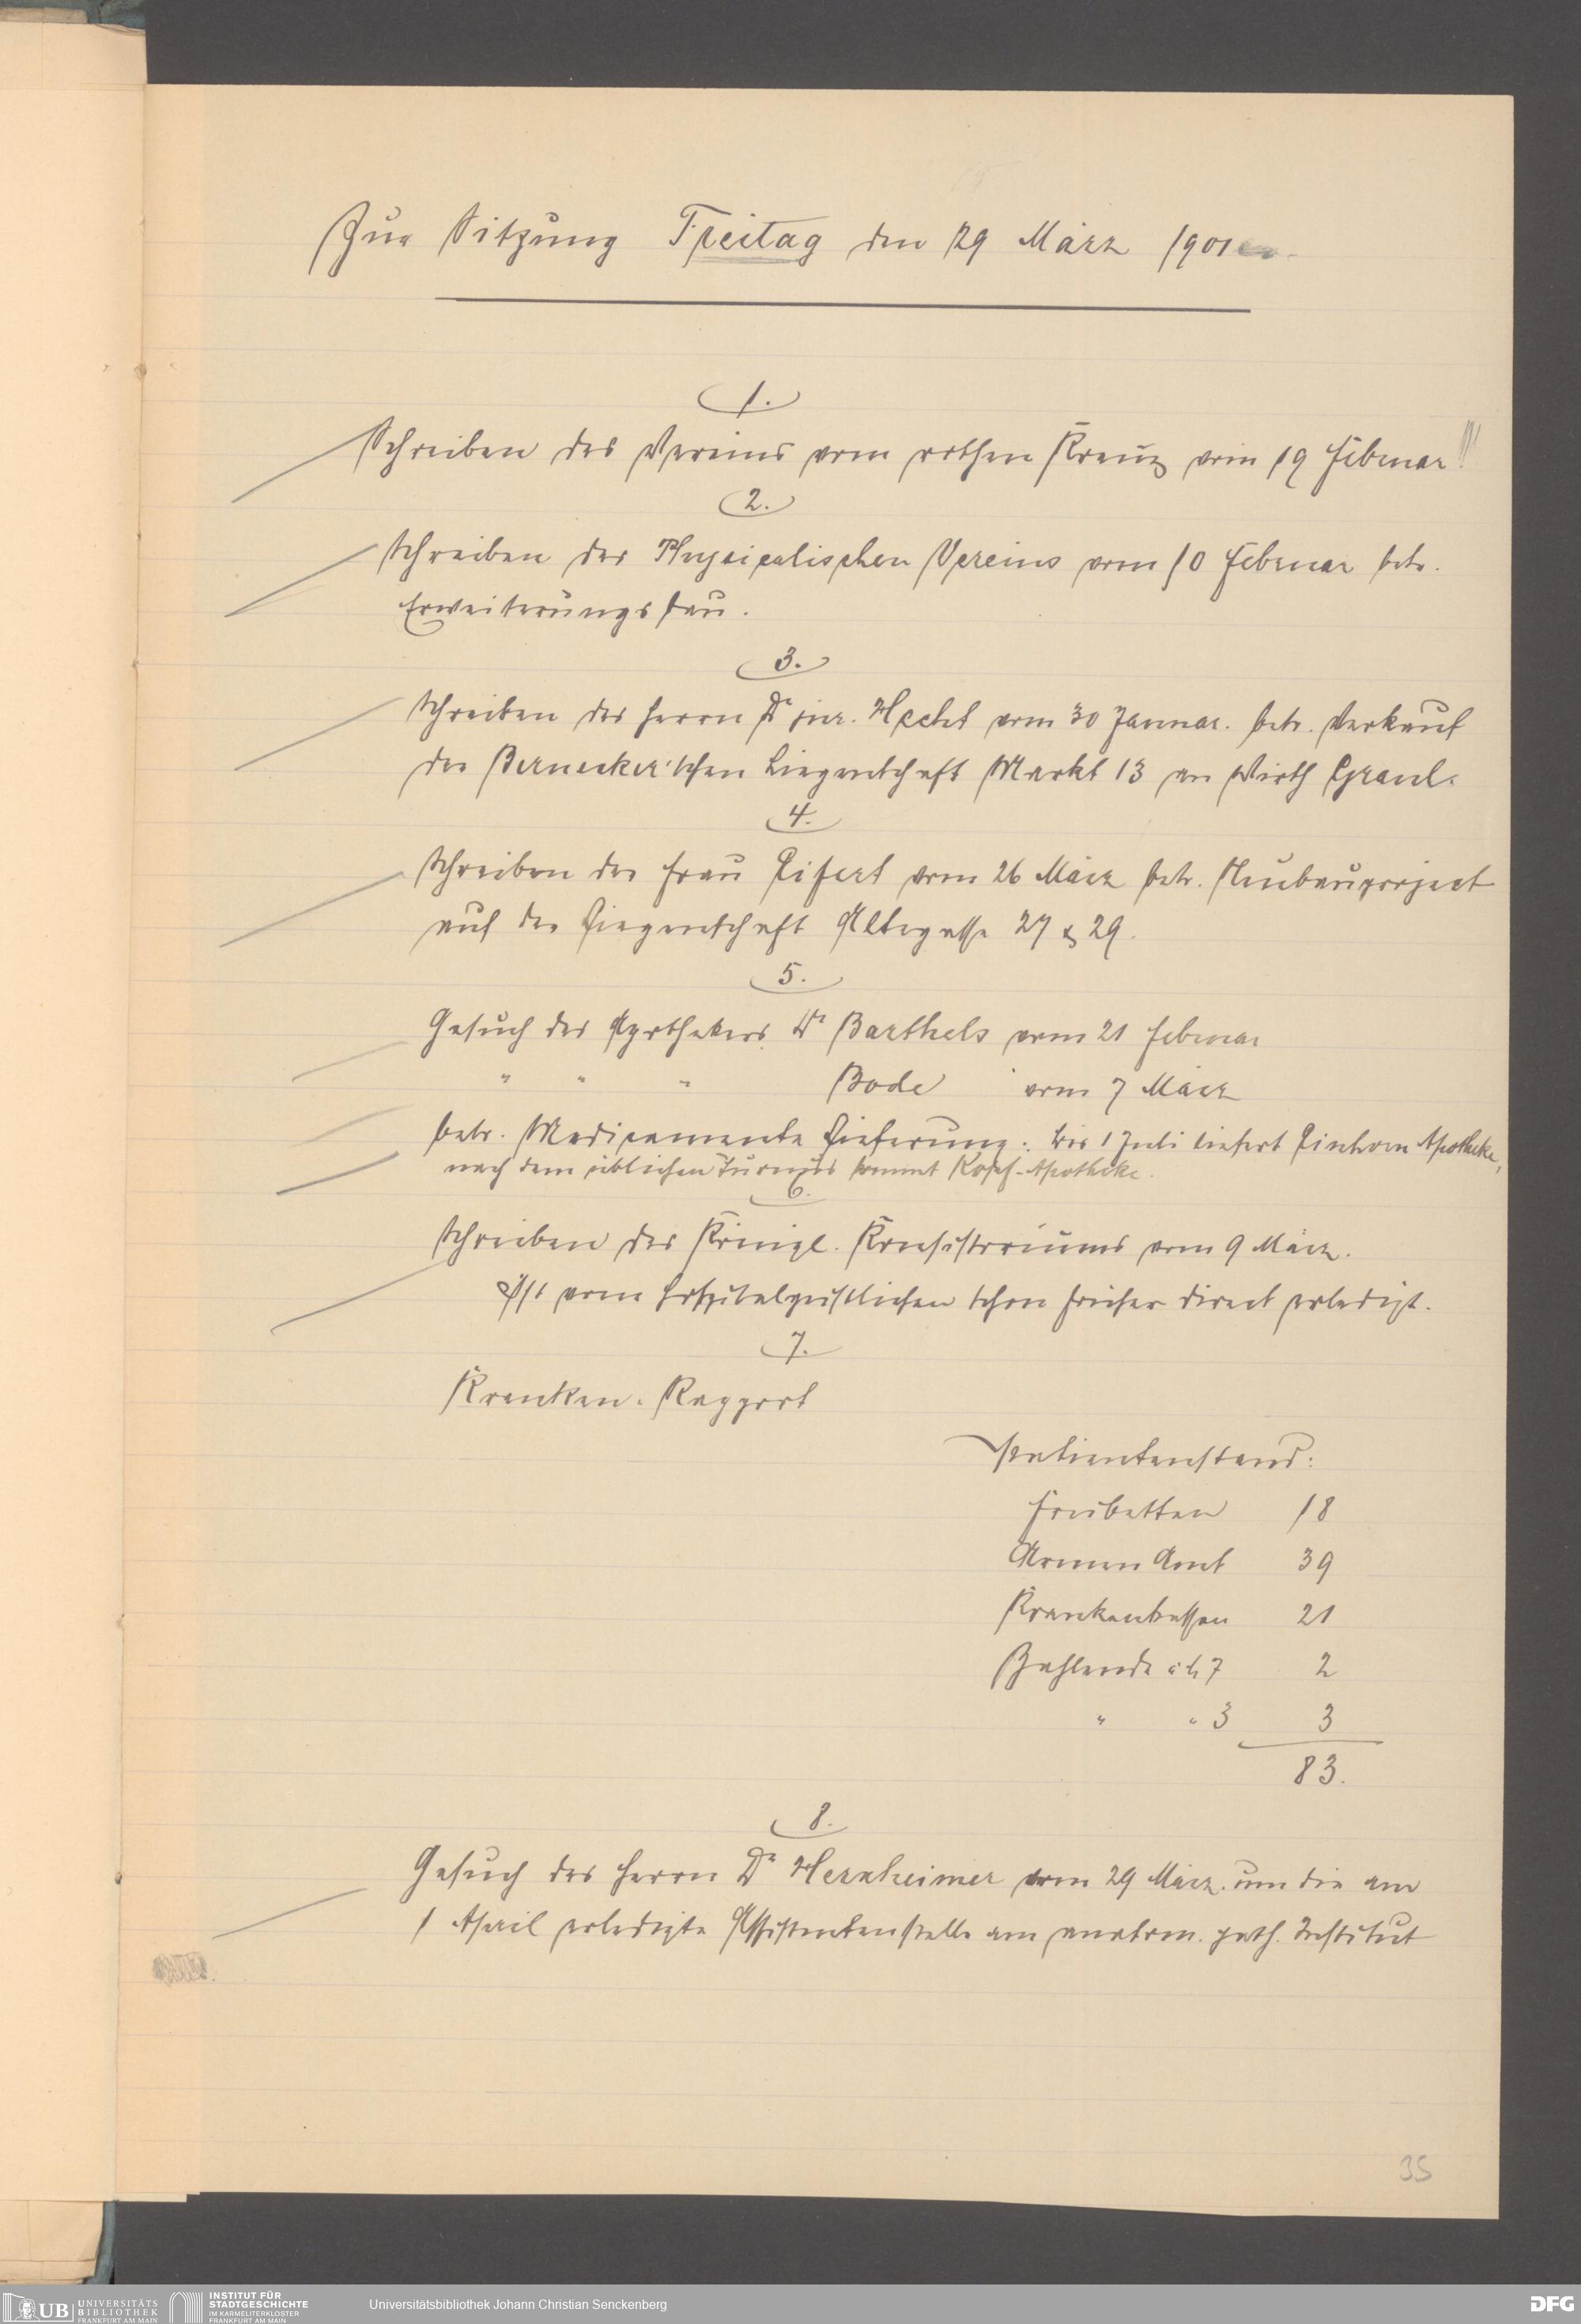 Zur Sitzung Freitag den 29 März 1901
1.
Schreiben des Vereins vom rothen Kreuz vom 19 Februar !!
2.
Schreiben des Physicalischen Vereins vom 10 Februar betr.
Erweiterungsbau.
3.
Schreiben des Herrn Dr jur. Hecht vom 30 Januar. betr. Verkauf
der Bernecker'schen Liegenschaft Markt 13 an Wirth
4.
Schreiben der Frau Eifert vom 26 März betr. Neubauproject
auf der Liegenschaft Altegasse 27 & 29.
5.
Gesuch des Apothekers Dr Barthels vom 21 Februar
" " " Bode vom 7 März
betr. Medicamente Lieferung: bis 1 Juli liefert Einhorn Apotheke,
nach dem üblichen Turnus kommt Kopf-Apotheke.
6.
Schreiben des Königl. Konsistoriums vom 9 März.
Ist vom Hospitalgeistlichen schon früher direct erledigt.
7.
Kranken-Rapport
Patientenstand:
Freibetten 18
Armen Amt 39
Krankenkassen 21
Zahlende à M 7 2
" " 3 3
83.
8.
Gesuch des Herrn Dr Herxheimer vom 29 März. um die am
1 April erledigte Assistentenstelle am anatom. path. Institut
35
UB UNIVERSITÄTS
BIBLIOTHEK
FRANKFURT AM MAIN
INSTITUT FÜR
STADTGESCHICHTE
IM KARMELITERKLOSTER
FRANKFURT AM MAIN
Universitätsbibliothek Johann Christian Senckenberg
DFG